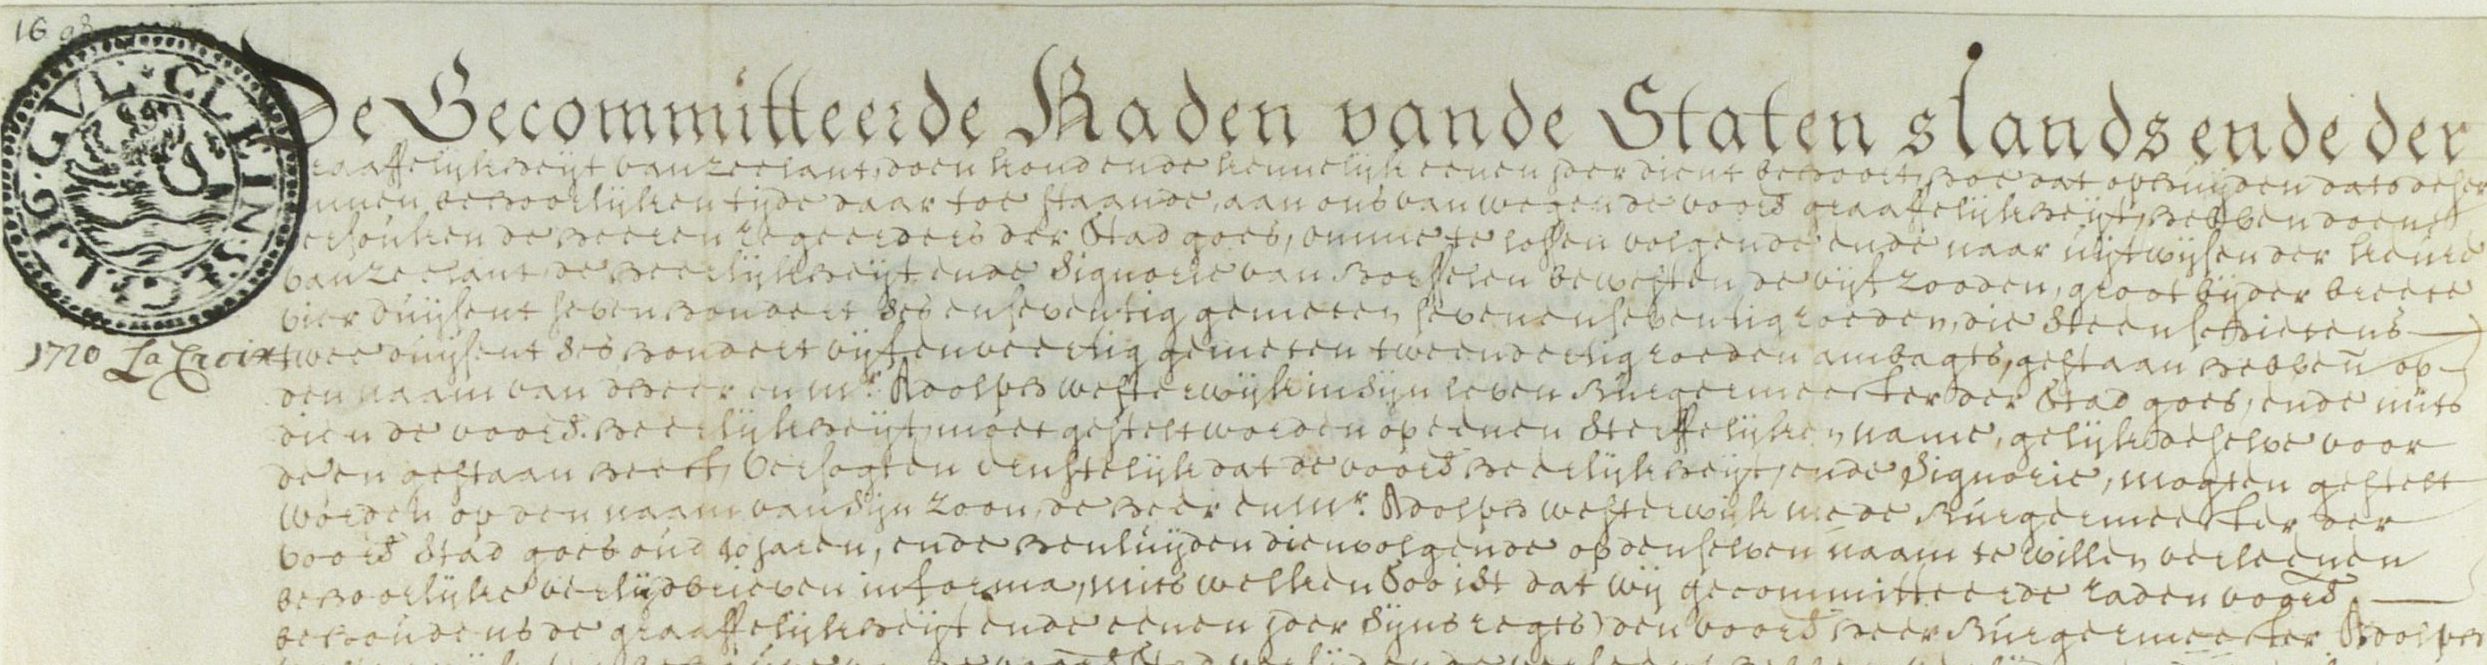 De Gecommitteerde Raden vande Staten slands ende der
graaffelijkheijt van zeelant, doen kond ende kennelijk eenen jder dient behoort, hoe dat op huijden dato deser
binnen behoorlijken tijde daar toe staande, aan ons van wegen de voors graaffelijkheijt, hebben doen
versouken de heeren regeerders der Stad goes, omme te lossen volgende ende naar uijtwijsen der keure
van zeelant de heerlijkheijt ende Signorie van Borsselen bewesten de vijf zooden, groot bijder breere
vier duijsent seven hondert ses en seventig gemeten seven en seventig roeden, die Steenschietens
1720 La Croix twee duijsent ses hondert vijf en veertig gemeten twee en dertig roeden ambagts, gestaan hebben op
den naam van d'heer en mr. Adolph westerwijk in sijn leven Burgermeester der Stad goes, ende mits
dien de voors. heerlijkheijt moet gestelt worden op eenen Sterffelijken name, gelijk deselve voor
deen gestaan heeft, versogten ernstelijk dat de voors heerlijkheijt, ende Signorie, mogten gestelt
worden op den naam van Sijn zoon, de heer en mr. Adolph westerwijk mede Burgermeester der
voors Stad goes oud 40 jaren, ende henluijden dienvolgende op denselven naam te willen verleenen
behoorlijke verlijdbrieven in forma, mits welken Soo ist dat wij gecommitteerde raden voors.
behoudens de graaffelijkheijt ende eenen jder Sijns regts) den voors heer Burgermeester Adolph
SIG. GVL. CLEINSE